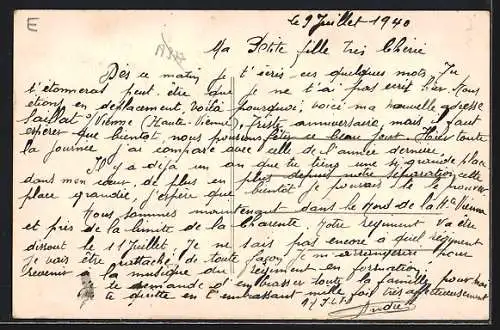 E
le 9 Juillet 1940
Ma Petite fille très Chérie
Dès ce matin je t'écris ces quelques mots. Tu
t'étonneras peut être que je ne t'ai pas écrit hier. Nous
étions en déplacement voilà pourquoi; voici ma nouvelle adresse
Saillat s/ Vienne (Haute-Vienne). Triste anniversaire, mais il faut
espérer que bientôt, nous pourrons fêter ce beau jour. Hier toute
la journée j'ai comparé avec celle de l'année dernière.
Il y a déjà un an que tu tiens une si grande place
dans mon cœur, de plus en plus depuis notre séparation cette
place grandie, j'espère que bientôt je pourrais te le prouver
Nous sommes maintenant dans le Nord de la Hte Vienne
et près de la limite de la Charente. Notre régiment va être
dissout le 11 Juillet. Je ne sais pas encore à quel régiment
Je vais être rattaché de toute façon je m'arrangerai pour
revenir à la musique du régiment en formation.
je te demande d'embrasser toute la famille pour moi
te quitte en t'embrassant mille fois très affectueusement
André